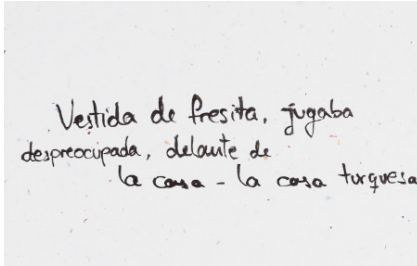 Vestida de fresita, jugaba
despreocupada, delante de
la casa - la casa turquesa